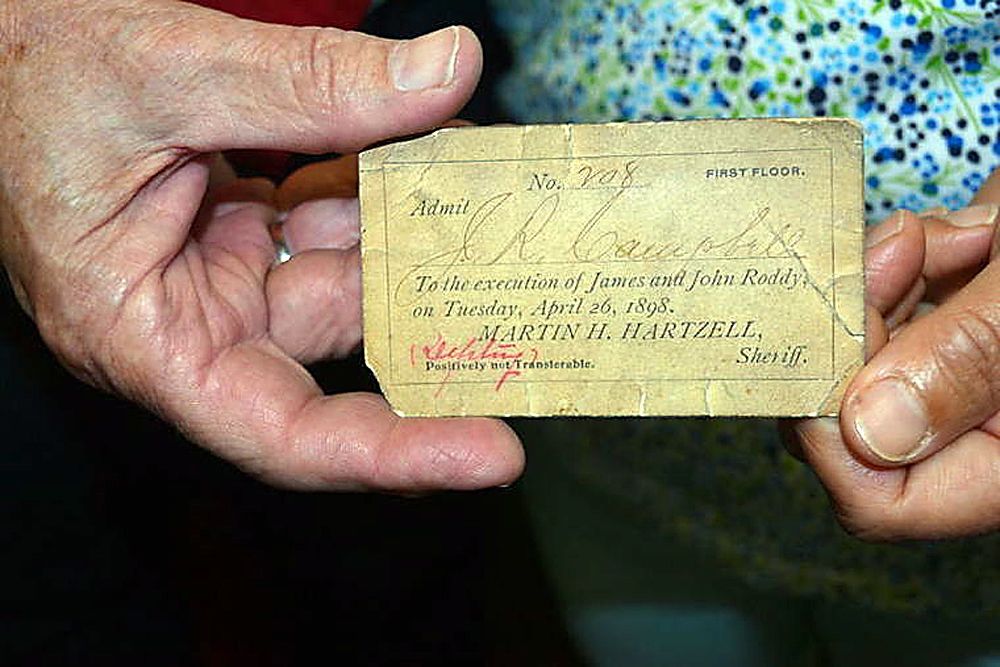 No. 208 FIRST FLOOR.
Admit J. R. Campbell
To the execution of James and John Roddy,
on Tuesday, April 26, 1898.
MARTIN H. HARTZELL,
Sheriff.
Positively not Transferable.